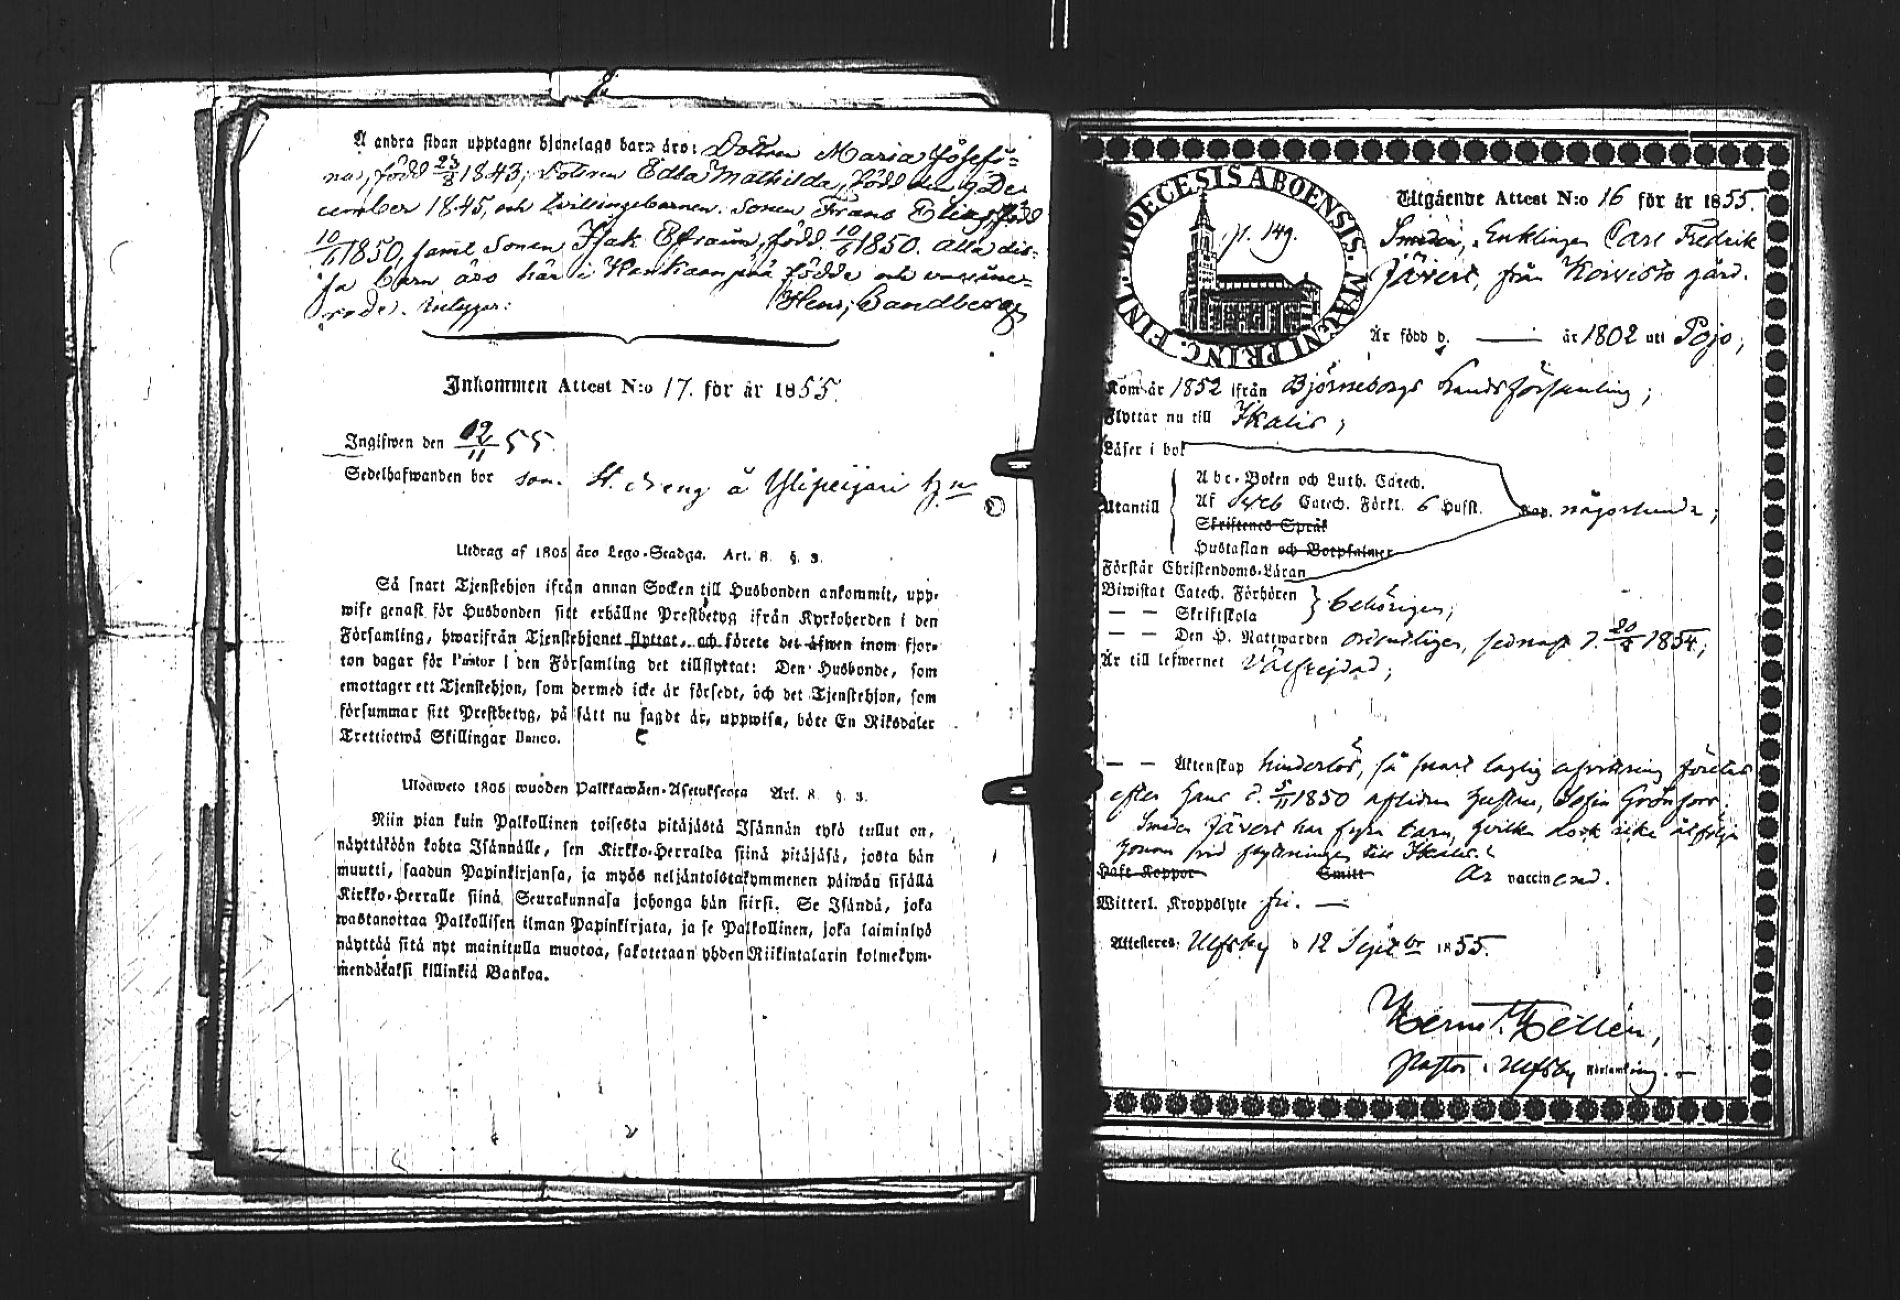 Å andra sidan upptagne hjonelags barn äro: Dottren Maria Josefi-
na, född 23/8 1843; Dottren Edla Mathilda, född den 9 De-
cember 1845, och tvillingebarnen: Sonen Frans Elias, född
10/6 1850, samt Sonen Isak Efraim, född 10/6 1850. alla des-
sa barn äro här i Honkaanpää födde och vaccine-
rade.
Henr. Sandberg
Inkommen Attest N:o 17. för år 1855.
Ingifwen den 12/11 55.
Sedelhafwanden bor som St. dreng å Ylipeijari hn
Utdrag af 1805 års Lego-Stadga. Art. 8. §. 3.
Så snart Tjenstehjon ifrån annan Socken till Husbonden ankommit, upp-
wise genast för Husbonden sitt erhållne Prestbetyg ifrån Kyrkoherden i den
Församling, hwarifrån Tjenstehjonet flyttat, och förete det äfwen inom fjor-
ton dagar för Pastor i den Församling det tillflyttat: Den Husbonde, som
emottager ett Tjenstehjon, som dermed icke är försedt, och det Tjenstehjon, som
försummar sitt Prestbetyg, på sätt nu sagdt är, uppwisa, böte En Riksdaler
Trettiotwå Skillingar Banco.
Ulosweto 1805 wuoden Palkkawäen-Asetuksesta Art. 8. §. 3.
Niin pian kuin Palkollinen toisesta pitäjästä Isännän tykö tullut on,
näyttäköön kohta Isännälle, sen Kirkko-Herralda siinä pitäjäsä, josta hän
muutti, saadun Papinkirjansa, ja myös neljäntoistakymmenen päiwän sisällä
Kirkko-Herralle siinä Seurakunnasa johonga hän siirsi. Se Isändä, joka
wastanottaa Palkollisen ilman Papinkirjata, ja se Palkollinen, joka laiminlyö
näyttää sitä nyt mainitulla muotoa, sakotetaan yhden Riikintalarin kolmekym-
mendäkaksi killinkiä Bankoa.
DIOECESIS ABOENSIS. MAGNI PRINC. FINL.
p. 149.
Utgående Attest N:o 16 för år 1855.
Smeden, Enklingen Carl Fredrik
Jävert, från Koivisto gård.
Är född d. — år 1802 uti Pojo;
Kom år 1852 ifrån Björneborgs Landsförsamling;
Flyttar nu till Ikalis;
Läser i bok
Utantill
Abc-Boken och Luth. Catech.
Af Sveb Catech. Förkl. 6 Hufst. någorlunda;
Skriftenes Språk
Hustaflan och Botpsalmer
Förstår Christendoms-Läran
Biwistat Catech. Förhören
— — Skriftskola behörigen;
— — Den H. Nattwarden ordentligen, sednast d. 20/8 1854;
Är till lefwernet Välfrejdad;
— — Äktenskap hinderlös, så snart laglig afvittring företes
efter hans d. 5/11 1850 aflidna hustru, Sofia Grönfors;
Smeden Jävert har fyra barn, hvilka dock icke åtfölja
honom vid flyttningen till Ikalis.
Haft Koppor Smitt Är vaccinerad.
Witterl. Kroppslyte fri. —
Attesteras: Ulfsby d 12 Septbr 1855.
Pastor i Ulfsby Församling. —